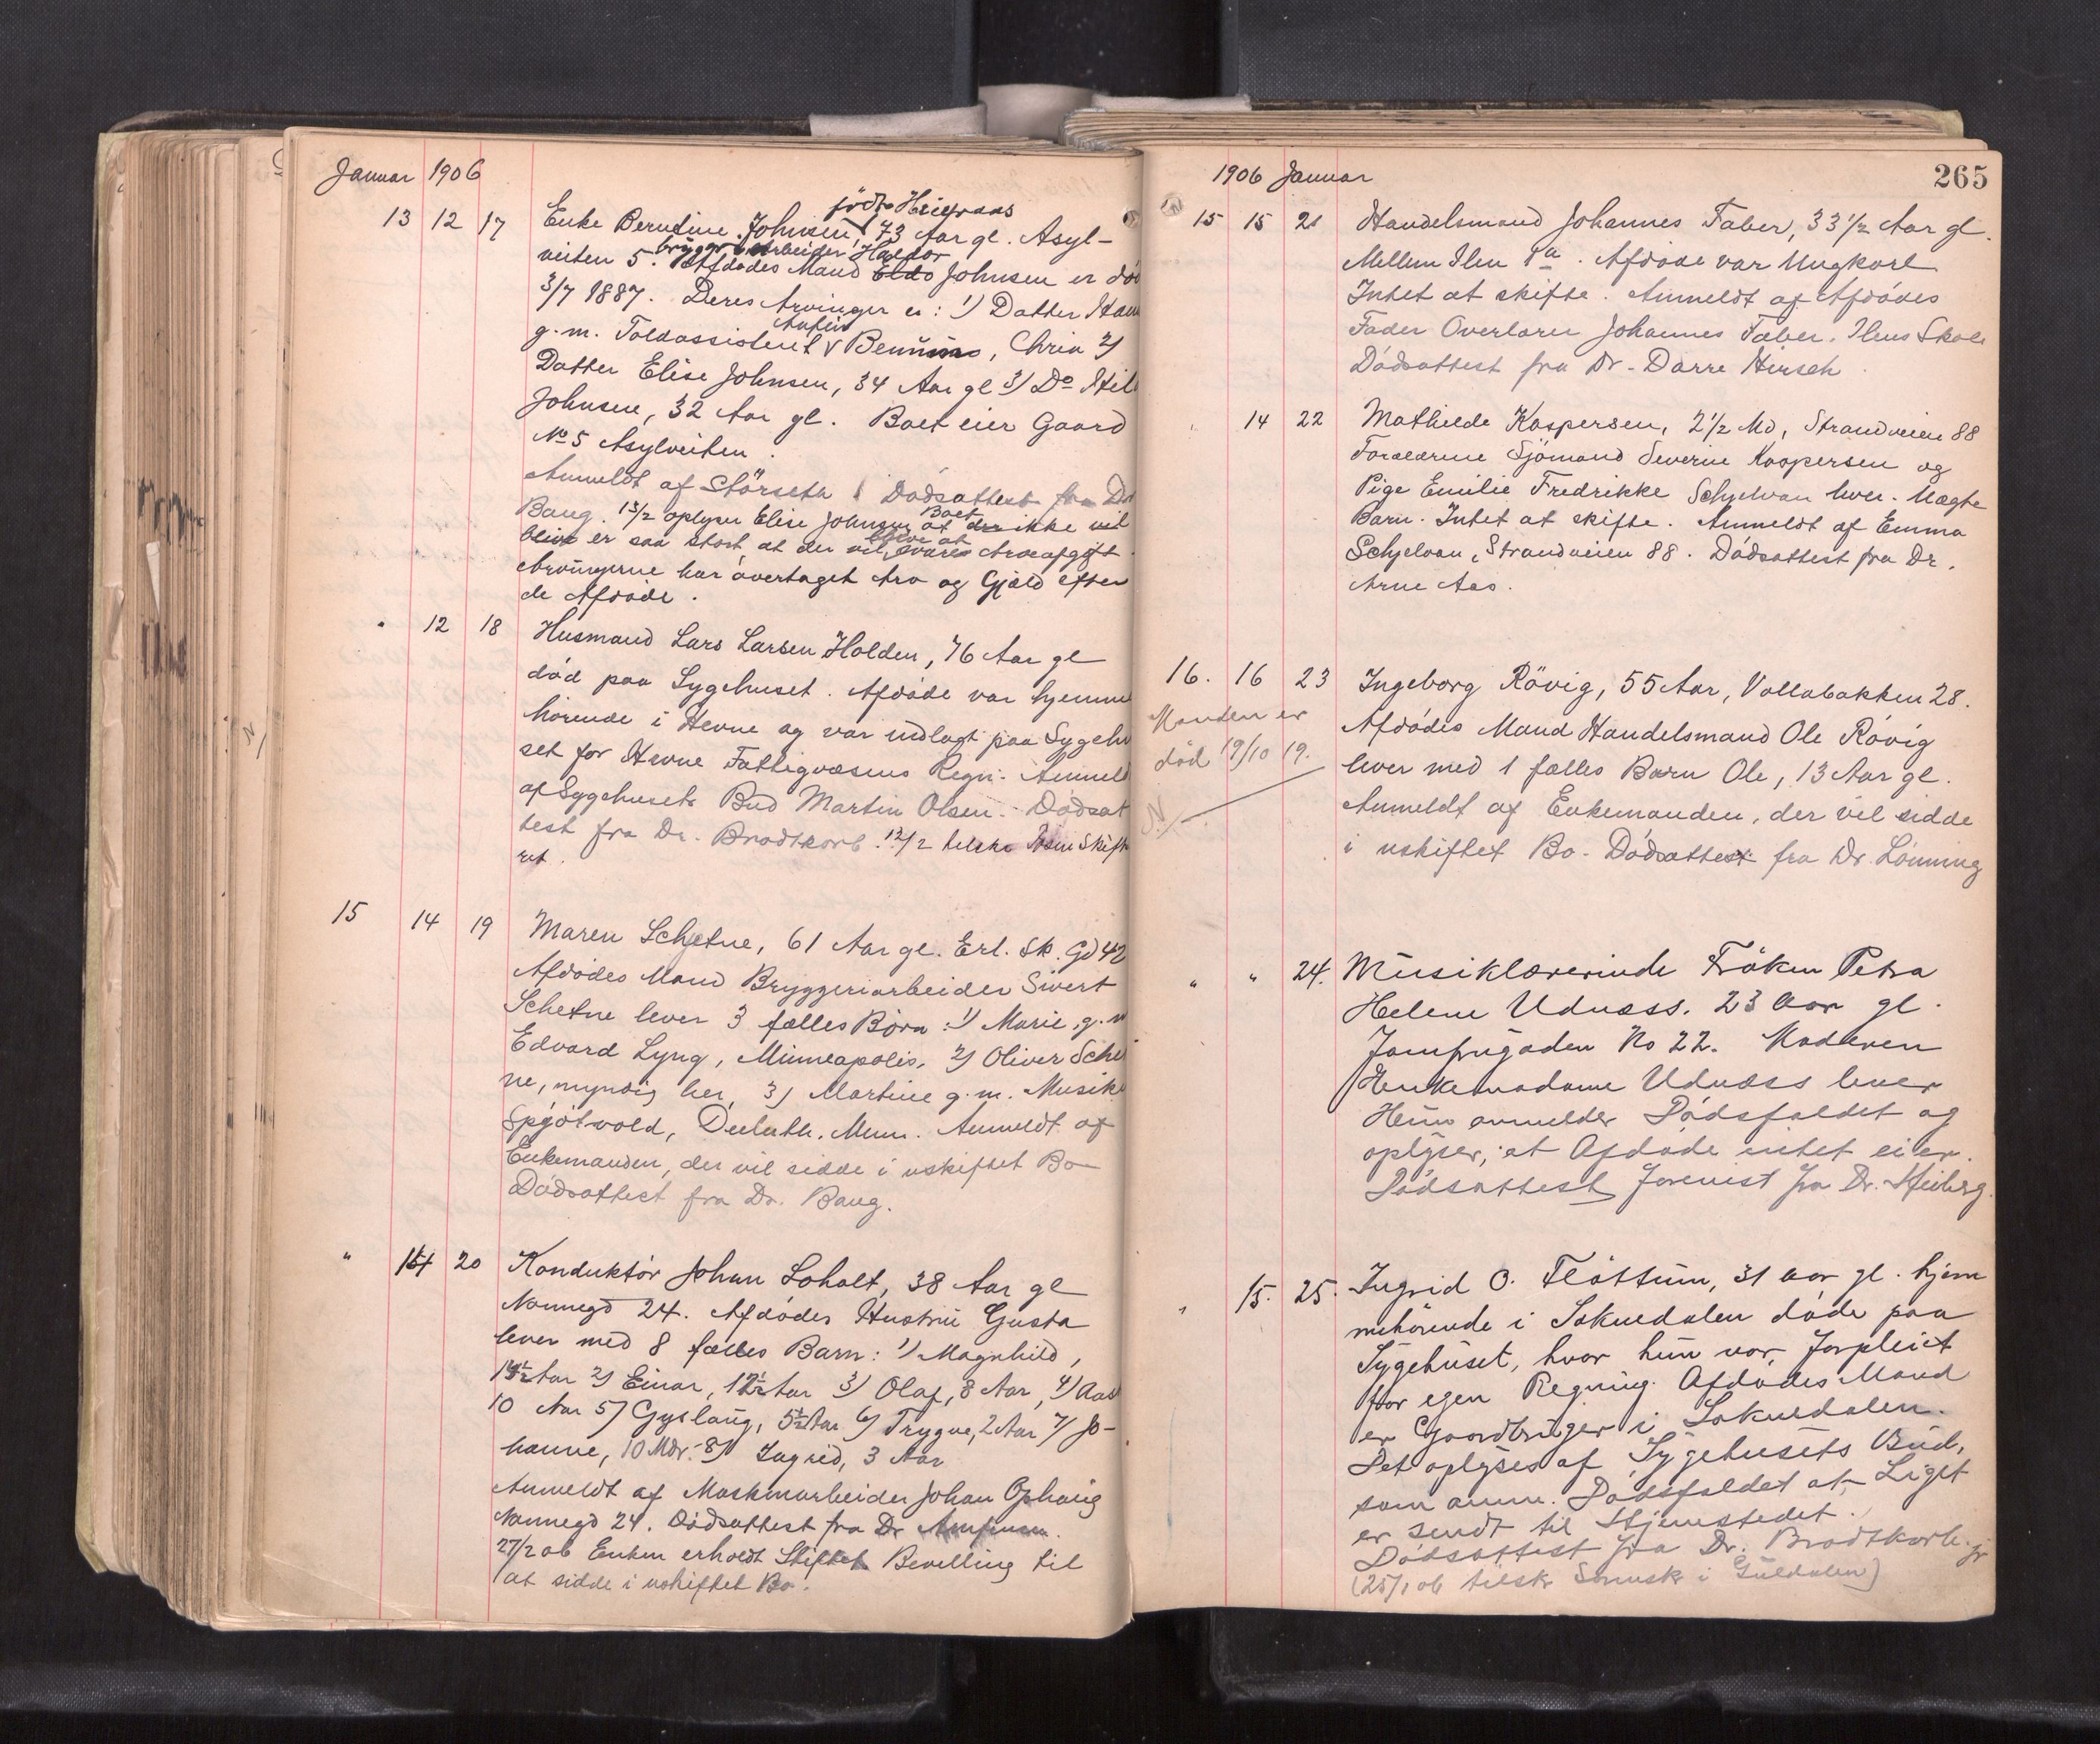 Januar 1906
13 12 17 Enke Berndine Johnsen, 73 Aar gl. Asyl-
født
bryggeriarbeider Haldor
veiten 5. Afdødes Mand Johnsen er død
3/7 1887. Deres Arvinger er: 1) Datter
g.m. Toldassistent, Chria 2)
Datter Elise Johnsen, 34 Aar gl 3) Do
Johnsen, 32 Aar gl. Boet eier Gaard
No 5 Asylveiten.
Anmeldt af Störseth Dødsattest fra Dr
Baug. 13/2 oplyser Elise Johnsen at Boet ikke vil
blive er saa stort, at der vil blive at svare Arveafgift.
Arvingerne har overtaget Arv og Gjæld efter
de Afdøde.
" 12 18 Husmand Lars Larsen Holden, 76 Aar gl
død paa Sygehuset. Afdøde var hjemme
hørende i Hevne og var indlagt paa Sygehu
set for Hevne Fattigvæsens Regn. Anmeldt
af Sygehusets Bud Martin Olsen. Dødsat
test fra Dr. Brodtkorb. 12/2 tilskr Skifte
ret.
15 14 19 Maren Schjetne, 61 Aar gl. Erl. Sk. Gd 42
Afdødes Mand Bryggeriarbeider Sivert
Schetne lever 3 fælles Børn: 1) Marie, g.m
Edvard Lyng, Minneapolis, 2) Oliver Schet
ne, myndig her, 3) Martine g.m. Musik
Spjøtvold, Duluth. Minn. Anmeldt af
Enkemanden, der vil sidde i uskiftet Bo
Dødsattest fra Dr. Baug.
" 14 20 Konduktør Johan Loholt, 38 Aar gl
Nonnegd 24. Afdødes Hustru Gusta
lever med 8 fælles Barn: 1) Magnhild,
14½ Aar 2) Einar, 12½ Aar 3) Olaf, 8 Aar, 4) Aas
10 Aar 5) Gyslaug, 5½ Aar 6) Trygve, 2 Aar 7) Jo-
hanne, 10 Mdr. 8) Ingrid, 3 Aar
Anmeldt af Maskinarbeider Johan Ophaug
Nonnegd 24. Dødsattest fra Dr
27/2 06 Enken erholdt Skiftet Bevilling til
at sidde i uskiftet Bo.
1906 Januar 265
15 15 21 Handelsmand Johannes Faber, 33 1/2 Aar gl.
Mellem Ilen 8a. Afdøde var Ungkarl
Intet at skifte. Anmeldt af Afdødes
Fader Overlærer Johannes Faber, Ilens Skole
Dødsattest fra Dr. Darre Hirsch.
" 14 22 Mathilde Kaspersen, 2 1/2 Md, Strandveien 88
Forældrene Sjömand Severin Kaspersen og
Pige Emilie Fredrikke Schjelvan lever. Uægte
Barn. Intet at skifte. Anmeldt af Emma
Schjelvan, Strandveien 88. Dødsattest fra Dr.
Arne Aas.
16. 16 23 Ingeborg Rövig, 55 Aar, Vollabakken 28.
Afdødes Mand Handelsmand Ole Rövig
lever med 1 fælles Barn Ole, 13 Aar gl.
Anmeldt af Enkemanden, der vil sidde
i uskiftet Bo. Dødsattest fra Dr. Lönning
Manden er
død 19/10 19.
" " 24. Musiklærerinde Frøken Petra
Helene Udnæss. 23 Aar gl.
Jomfrugaden No 22. Moderen
Enkemadame Udnæss lever
Hun anmelder Dødsfaldet og
oplyser, at Afdøde intet eier.
Dødsattest forevist fra Dr. Heiberg.
" 15. 25. Ingrid O. Fløttum, 31 Aar gl. hjem
mehørende i Soknedalen døde paa
Sygehuset, hvor hun var forpleiet
for egen Regning. Afdødes Mand
er Gaardbruger i Soknedalen.
Det oplyses af Sygehusets Bud,
som anm. Dødsfaldet at Liget
er sendt til Hjemstedet.
Dødsattest fra Dr. Brodtkorb. jr
(25/1 06 tilskr Sorensk i Guldalen)